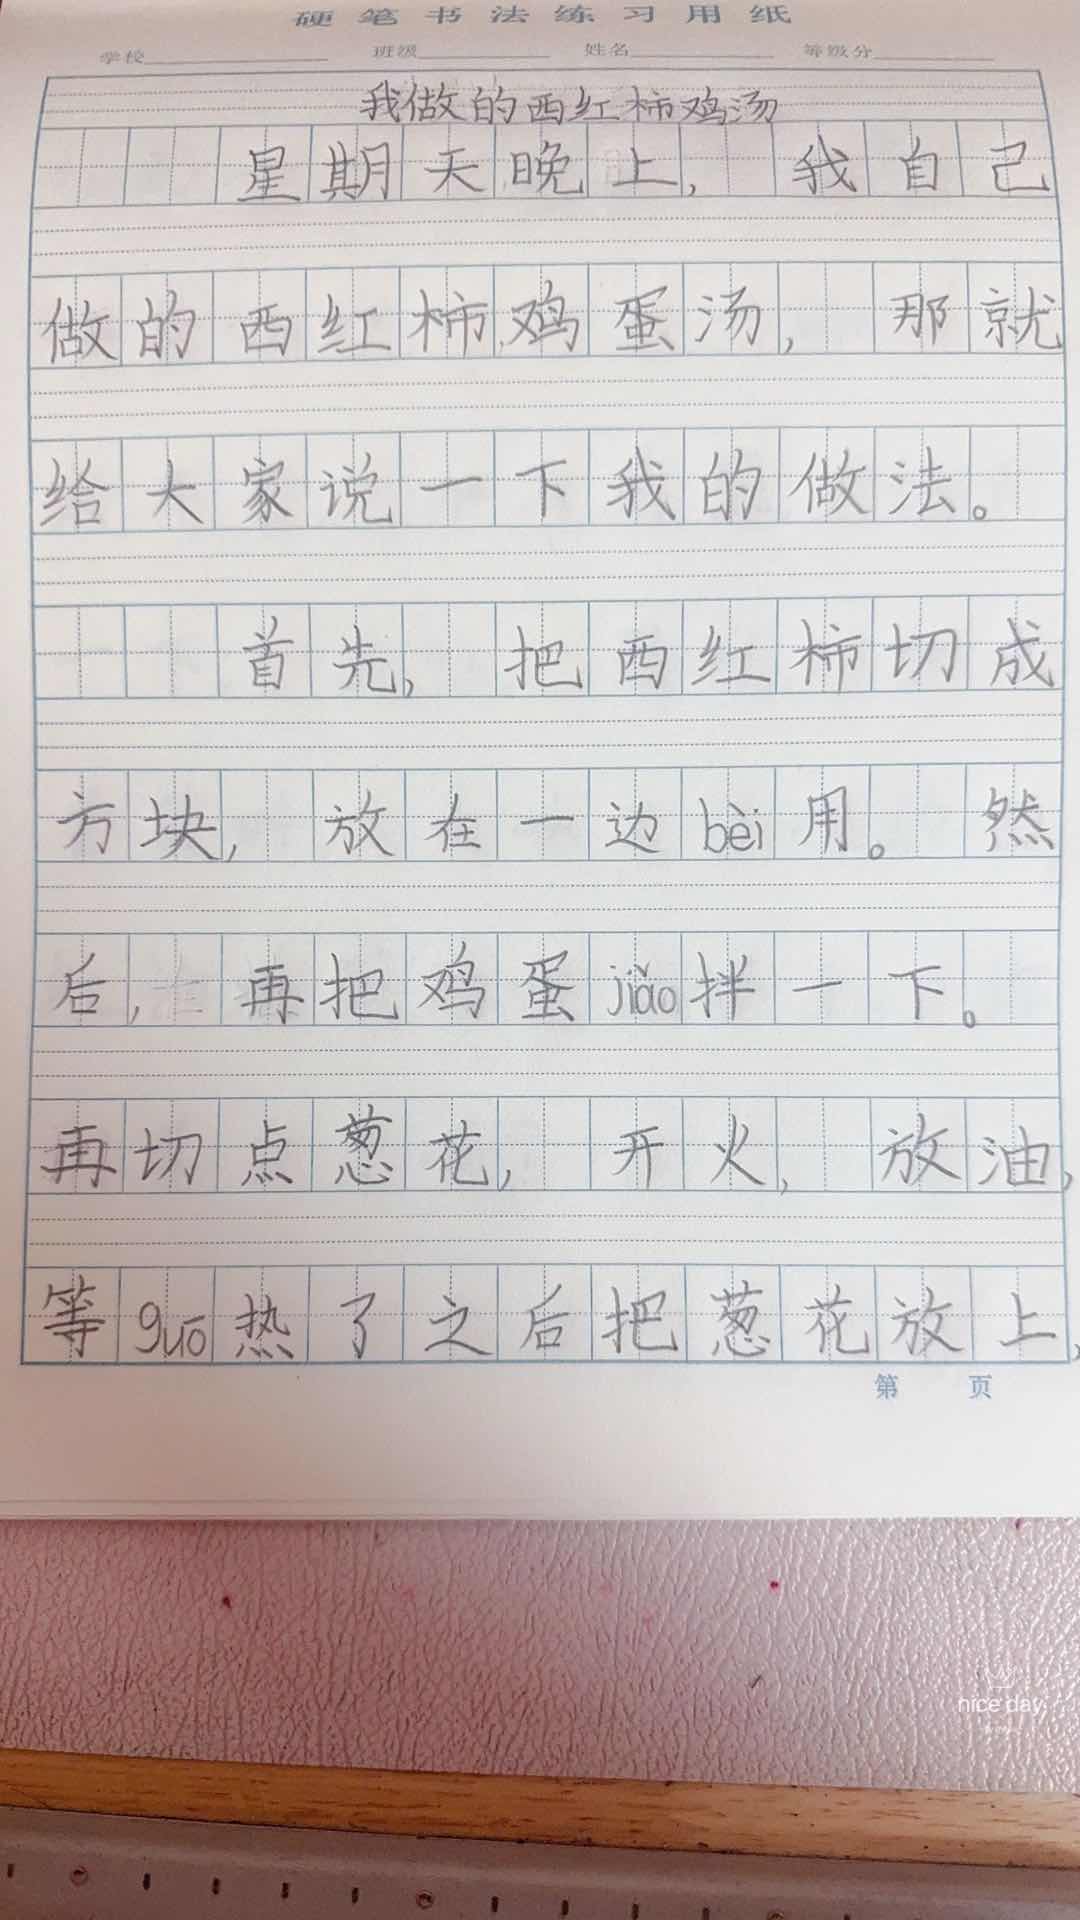 硬笔书法练习用纸
学校 班级 姓名 等级分
我做的西红柿鸡汤
星期天晚上,我自己
做的西红柿鸡蛋汤,那就
给大家说一下我的做法。
首先,把西红柿切成
方块,放在一边bèi用。然
后,再把鸡蛋jiǎo拌一下。
再切点葱花,开火,放油,
等guō热了之后把葱花放上,
第 页
nice day